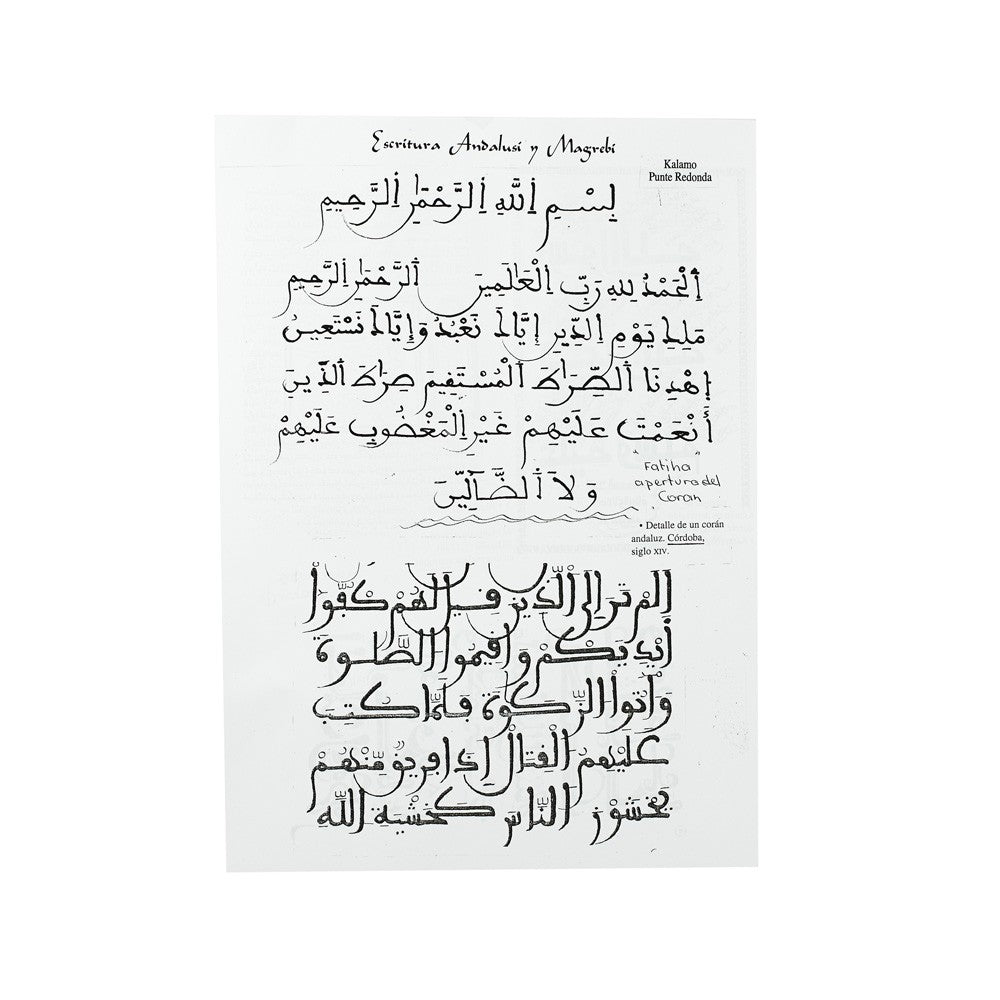 Escritura Andalusi y Magrebi
Kalamo
Punte Redonda
بِسْمِ اِللَّهِ اِلرَّحْمَٰنِ اِلرَّحِيمِ
اَلْحَمْدُ لِلهِ رَبِّ اِلْعَٰلَمِينَ اَلرَّحْمَٰنِ اِلرَّحِيمِ
مَلِكِ يَوْمِ اِلدِّينِ إِيَّاكَ نَعْبُدُ وَإِيَّاكَ نَسْتَعِينُ
إِهْدِنَا اَلصِّرَاطَ اَلْمُسْتَفِيمَ صِرَاطَ اَلذِينَ
أَنْعَمْتَ عَلَيْهِمْ غَيْرِ اِلْمَغْضُوبِ عَلَيْهِمْ
وَلَا اَلضَّآلِّينَ
"Fatiha"
apertura del
Coran
• Detalle de un corán
andaluz. Córdoba,
siglo XIV.
اَلَمْ تَرَ إِلَى اَلَّذِينَ فِيلَ لَهُمْ كُفُّوٓاْ
أَيْدِيَكُمْ وَأَفِيمُواْ اُلصَّلَوٰةَ
وَءَاتُواْ اُلزَّكَوٰةَ فَلَمَّا كُتِبَ
عَلَيْهِمُ اُلْفِتَالُ إِذَا فَرِيقٌ مِّنْهُمْ
يَخْشَوْنَ اَلنَّاسَ كَخَشْيَةِ اِللَّهِ